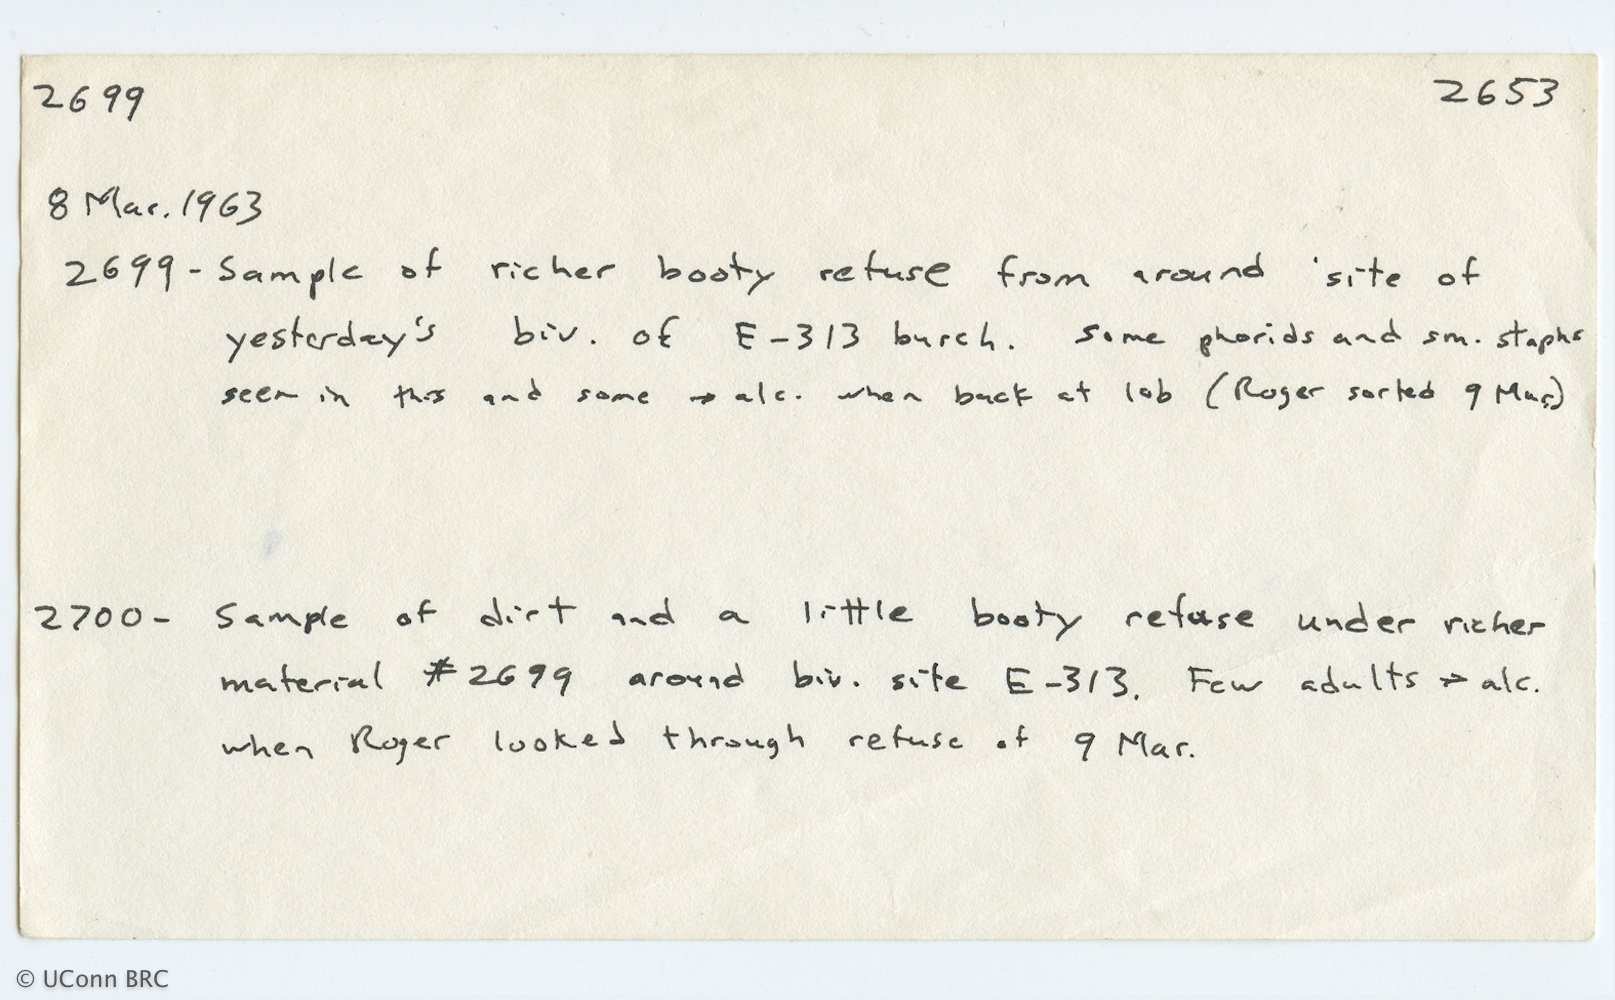 2699 2653
8 Mar. 1963
2699 - Sample of richer booty refuse from around site of
yesterday's biv. of E-313 burch. Some phorids and sm. staphs
seen in this and some → alc. when back at lab (Roger sorted 9 Mar.)
2700 - Sample of dirt and a little booty refuse under richer
material #2699 around biv. site E-313. Few adults → alc.
when Roger looked through refuse of 9 Mar.
© UConn BRC